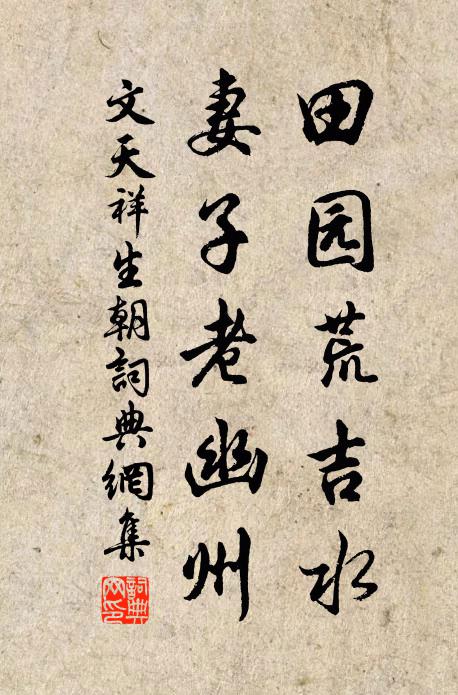 田园荒吉水
妻子老幽州
文天祥生朝詞典網集
詞典網印